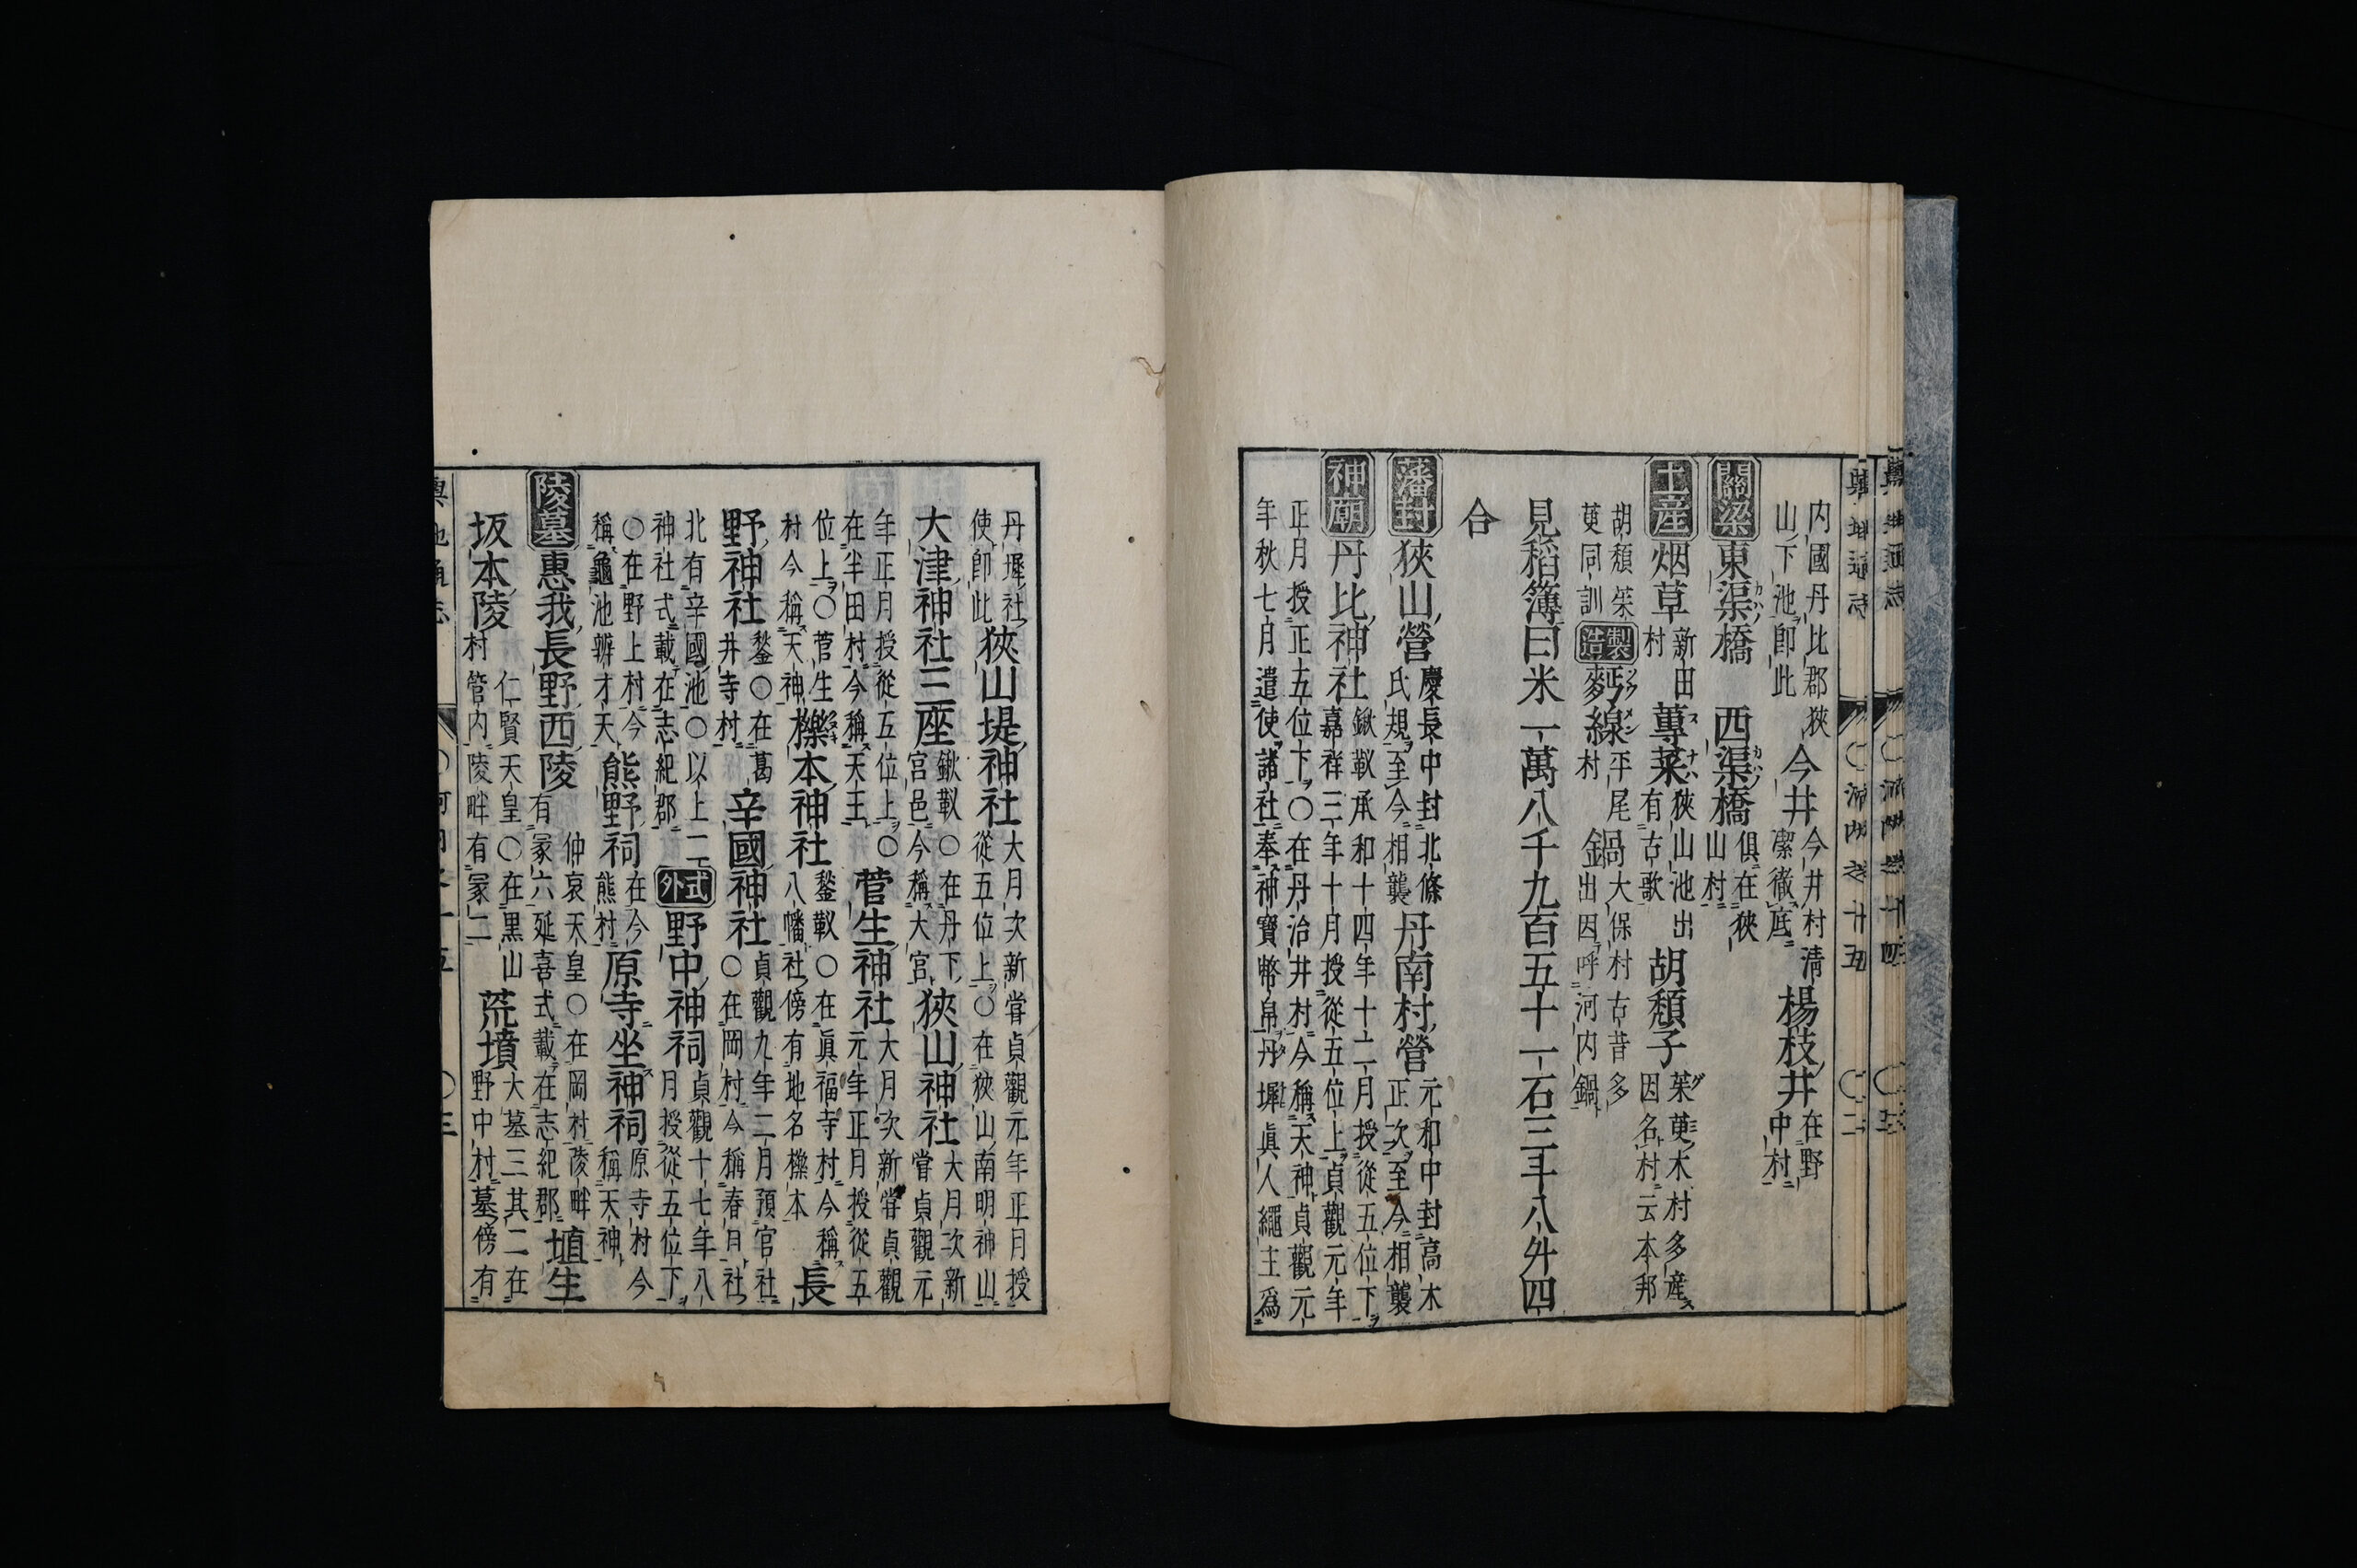 内國丹比郡狹山下池即此 今井 今井村清潔徹底 楊枝井 在野中村
關梁 東渠橋 西渠橋 俱在狹山村
土産 烟草 新田村 蓴菜 狹山池出有古歌 胡頽子 茱萸木村多産因名村云本邦
胡頽茱萸同訓 製造 麪線 平尾村 鍋 大保村古昔多出因呼河内鍋
見稻簿曰米一萬八千九百五十一石三斗八升四
合
藩封 狹山營 慶長中封北條氏規至今相襲 丹南村營 元和中封高木正次至今相襲
神廟 丹比神社 鍬靫承和十四年十二月授從五位下嘉祥三年十月授從五位上貞觀元年
正月授正五位下○在丹治井村今稱天神貞觀元年秋七月遣使諸社奉神寶幣帛丹墀眞人繩主爲
丹墀社使即此 狹山堤神社 大月次新甞貞觀元年正月授從五位上○在狹山南明神山
大津神社三座 鍬靫○在丹下宮邑今稱大宮 狹山神社 大月次新甞貞觀元
年正月授從五位上○在半田村今稱天王 菅生神社 大月次新甞貞觀元年正月授從五
位上○菅生村今稱天神 櫟本神社 鍫靫○在眞福寺村今稱八幡社傍有地名櫟本 長
野神社 鍫○在葛井寺村 辛國神社 貞觀九年二月預官社○在岡村今稱春日社
北有辛國池○以上二神社式載在志紀郡 式外 野中神祠 貞觀十七年八月授從五位下
○在野上村今稱龜池辨才天 熊野祠 在今熊村 原寺坐神祠 原寺村今稱天神
陵墓 惠我長野西陵 仲哀天皇○在岡村陵畔有冢六延喜式載在志紀郡 埴生
坂本陵 仁賢天皇○在黒山村管内陵畔有冢二 荒墳 大墓三其二在野中村墓傍有